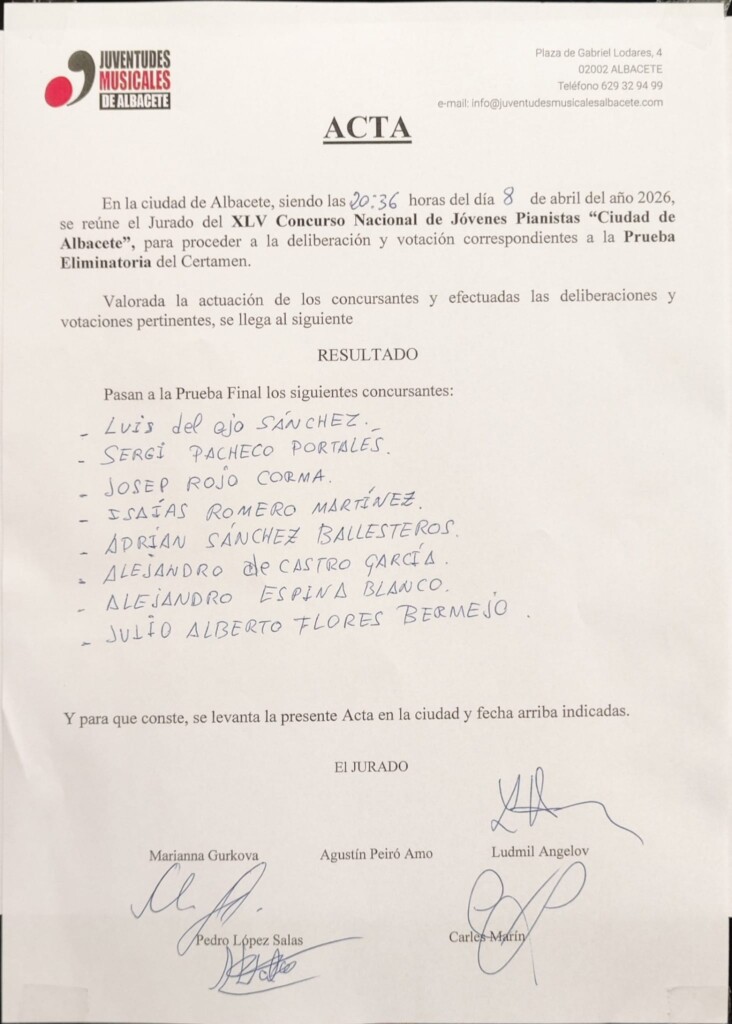 JUVENTUDES
MUSICALES
DE ALBACETE
Plaza de Gabriel Lodares, 4
02002 ALBACETE
Teléfono 629 32 94 99
e-mail: info@juventudesmusicalesalbacete.com
ACTA
En la ciudad de Albacete, siendo las 20:36 horas del día 8 de abril del año 2026,
se reúne el Jurado del XLV Concurso Nacional de Jóvenes Pianistas “Ciudad de
Albacete”, para proceder a la deliberación y votación correspondientes a la Prueba
Eliminatoria del Certamen.
Valorada la actuación de los concursantes y efectuadas las deliberaciones y
votaciones pertinentes, se llega al siguiente
RESULTADO
Pasan a la Prueba Final los siguientes concursantes:
- LUIS del ojo SÁNCHEZ.
- SERGI PACHECO PORTALES.
- JOSEP ROJO CORMA.
- ISAÍAS ROMERO MARTÍNEZ.
- ADRIÁN SÁNCHEZ BALLESTEROS.
- ALEJANDRO de CASTRO GARCÍA.
- ALEJANDRO ESPINA BLANCO.
- JULIO ALBERTO FLORES BERMEJO.
Y para que conste, se levanta la presente Acta en la ciudad y fecha arriba indicadas.
El JURADO
Marianna Gurkova Agustín Peiró Amo Ludmil Angelov
Pedro López Salas Carles Marín